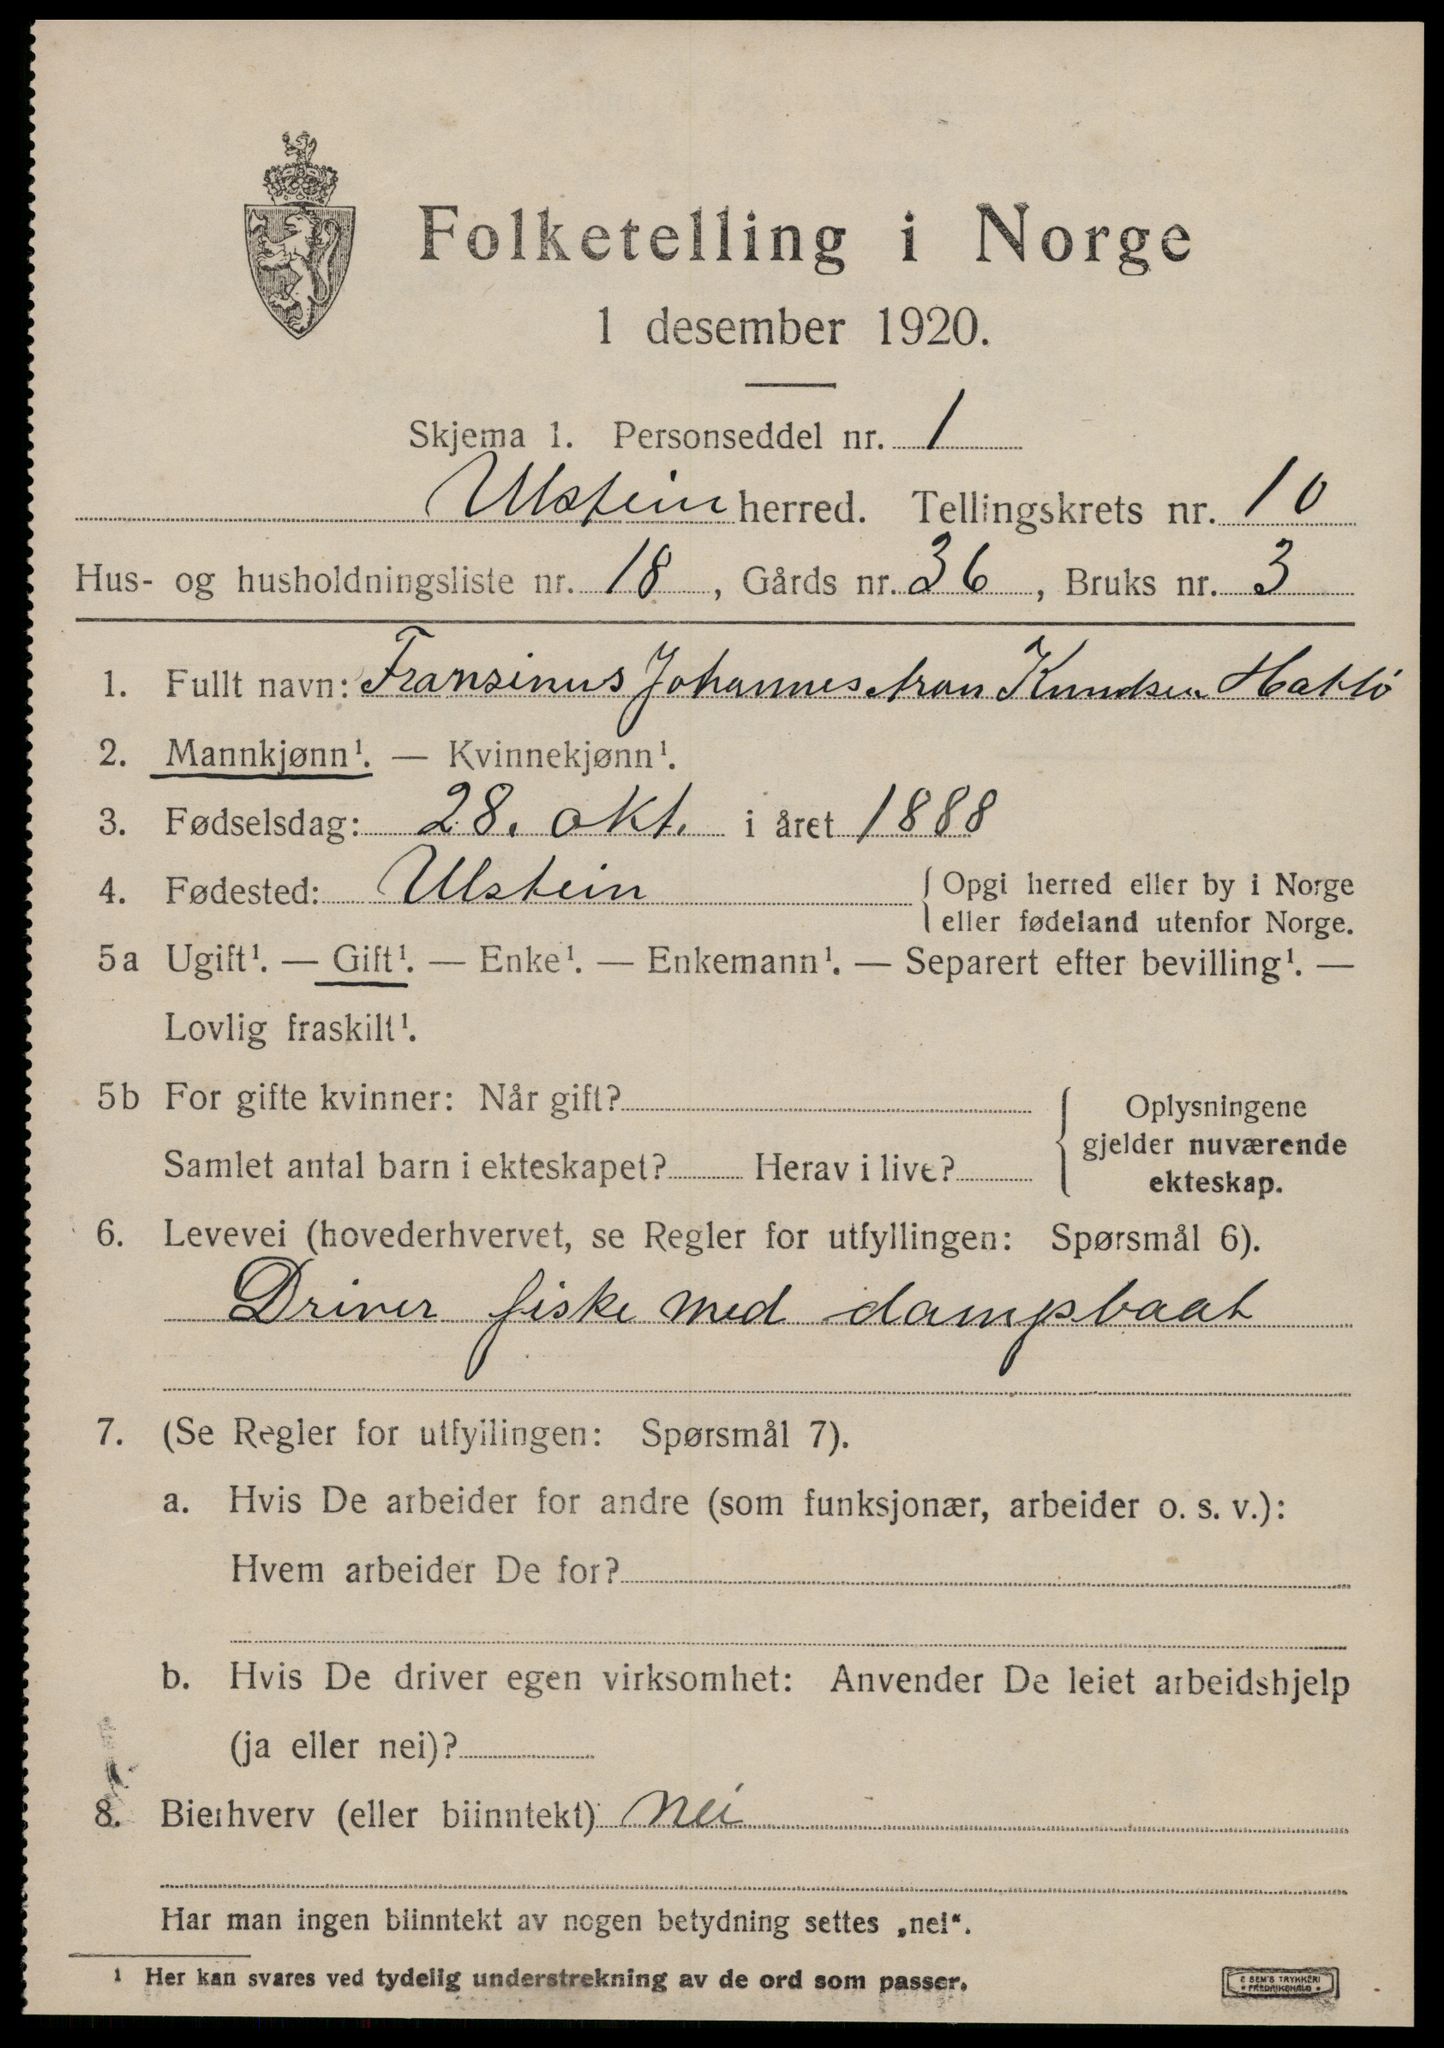 Folketelling i Norge
1 desember 1920.
Skjema 1. Personseddel nr. 1
Ulstein herred. Tellingskrets nr. 10
Hus- og husholdningsliste nr. 18, Gårds nr. 36, Bruks nr. 3
1. Fullt navn: Fransinus Johannes Aron Knudsen Hatlö
2. Mannkjønn¹. — Kvinnekjønn¹.
3. Fødselsdag: 28. okt. i året 1888
4. Fødested: Ulstein { Opgi herred eller by i Norge
eller fødeland utenfor Norge.
5a Ugift¹. — Gift¹. — Enke¹. — Enkemann¹. — Separert efter bevilling¹. —
Lovlig fraskilt¹.
5b For gifte kvinner: Når gift?
Samlet antal barn i ekteskapet? Herav i live?
Oplysningene
gjelder nuværende
ekteskap.
6. Levevei (hovederhvervet, se Regler for utfyllingen: Spørsmål 6).
Driver fiske med dampbaat
7. (Se Regler for utfyllingen: Spørsmål 7).
a. Hvis De arbeider for andre (som funksjonær, arbeider o. s. v.):
Hvem arbeider De for?
b. Hvis De driver egen virksomhet: Anvender De leiet arbeidshjelp
(ja eller nei)?
8. Bierhverv (eller biinntekt) Nei
Har man ingen biinntekt av nogen betydning settes „nei“.
1 Her kan svares ved tydelig understrekning av de ord som passer.
E SEM'S TRYKKERI
FREDRIKSHALD